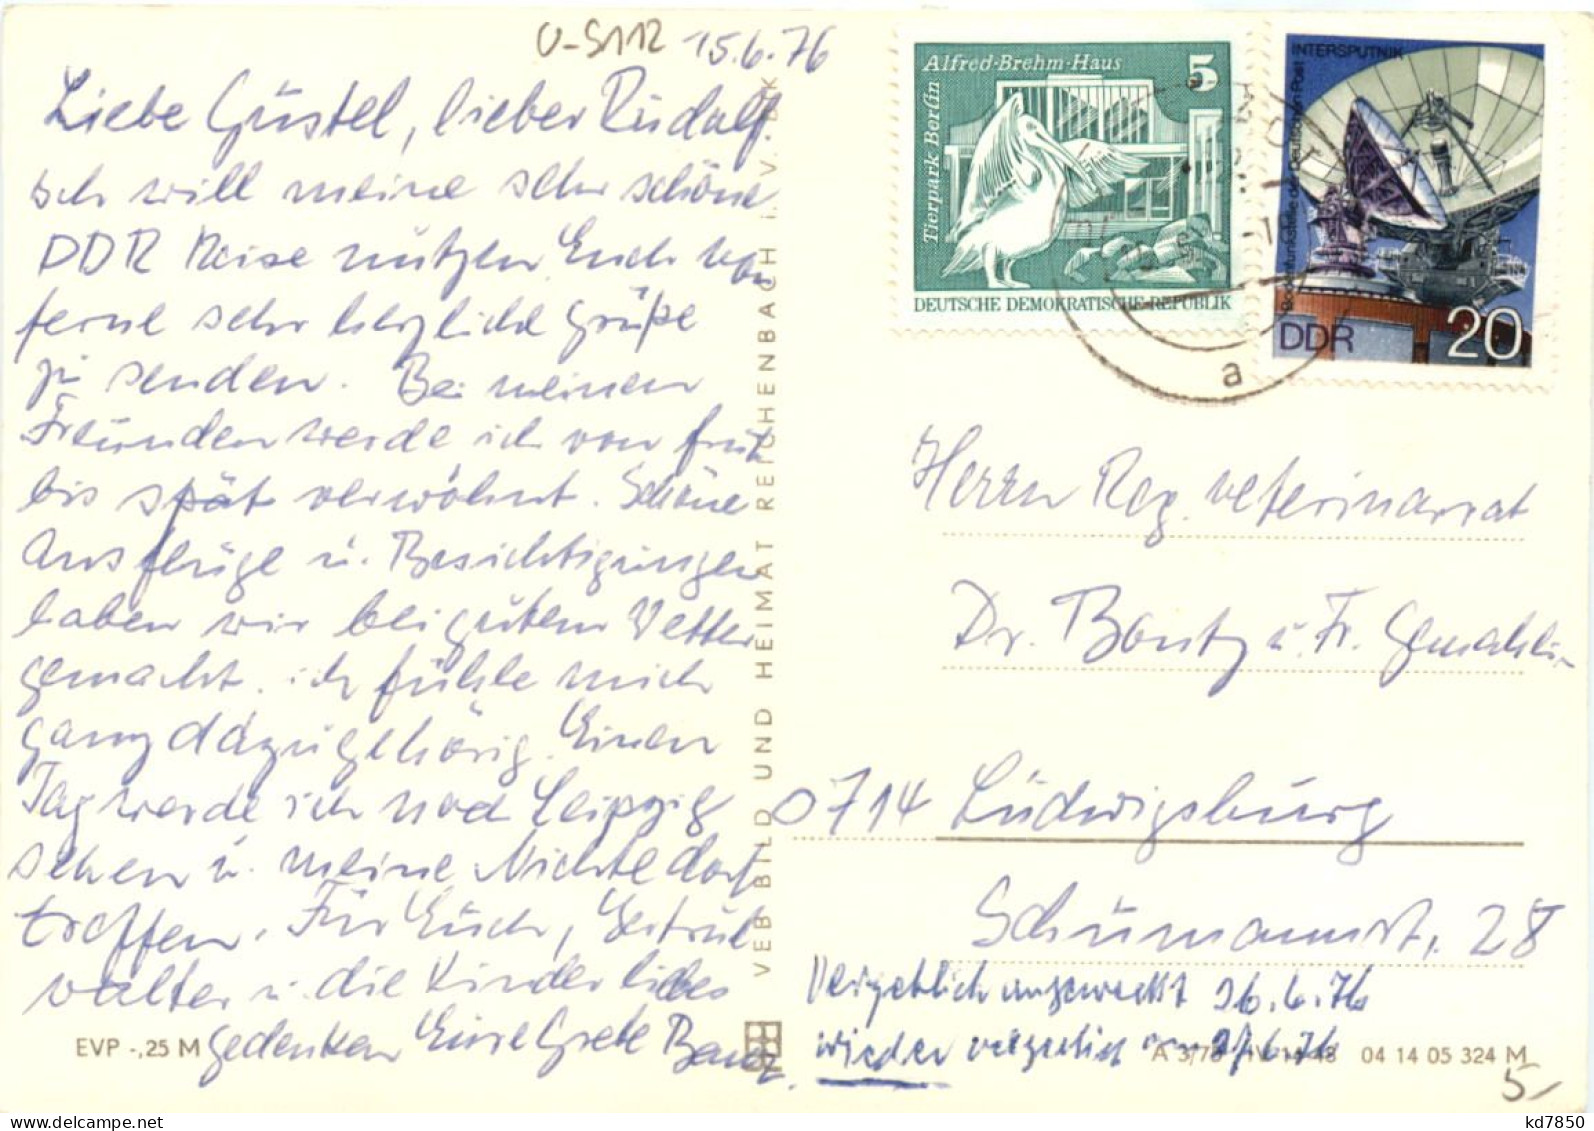 U-S112 15.6.76
Liebe Güstel, lieber Rudolf.
Ich will meine sehr schöne
DDR Reise nützen Euch von
ferne sehr herzliche Grüße
zu senden. Bei meinen
Freunden werde ich von früh
bis spät verwöhnt. Schöne
Ausflüge u. Besichtigungen
haben wir bei gutem Wetter
gemacht. ich fühle mich
ganz dazugehörig. Einen
Tag werde ich noch Leipzig
sehen u. meine Nichte dort
treffen. Für Euch, Gertrud
Walter u. die Kinder liebes
gedenken Eure Grete
EVP -,25 M
VEB BILD UND HEIMAT REICHENBACH i. V.
Alfred-Brehm-Haus 5
Tierpark Berlin
DEUTSCHE DEMOKRATISCHE REPUBLIK
INTERSPUTNIK
Bodenfunkstelle der Deutschen Post
DDR 20
a
Herrn Reg. veterinärrat
Dr. Bontz u. Fr. Gemahlin
0714 Ludwigsburg
Schumannstr. 28
Vergeblich angeweckt 26.6.76
wieder vergeblich
A 3/76 IV-14-48 04 14 05 324 M
5,-
kd7850